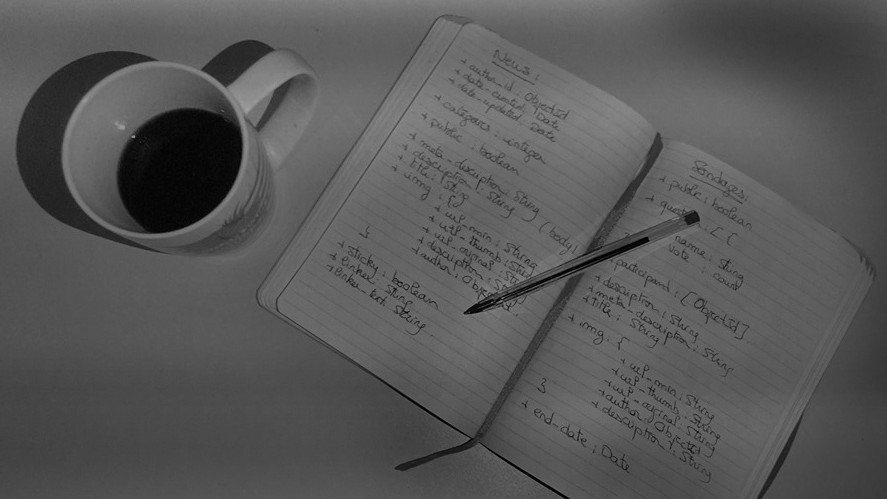 News:
+ author-id: ObjectId
+ date-created: Date
+ date-updated: Date
+ category: integer
+ public: boolean
+ meta-description: String
+ description: String (body)
+ title: String
+ img: {
+ url-min: String
+ url-thumb: String
+ url-original: String
+ description: String
+ author: ObjectId
}
+ sticky: boolean
+ linker: String
+ linker-text: String
Sondages:
+ public: boolean
: [ {
name: String
vote: count
+ participant: [ObjectId]
+ description: String
+ meta-description: String
+ title: String
+ img: {
+ url-min: String
+ url-thumb: String
+ url-original: String
+ author: ObjectId
+ description: String
}
+ end-date: Date